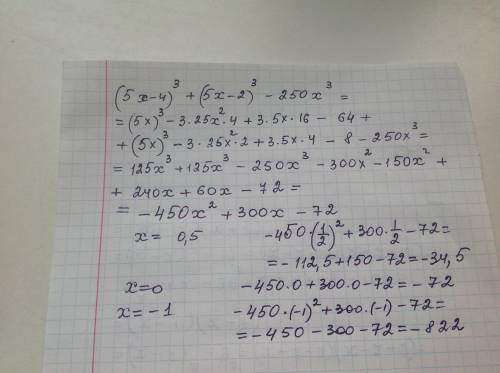 (5x-4)³ + (5x-2)³ - 250x³ =
= (5x)³ - 3·25x²·4 + 3·5x·16 - 64 +
+ (5x)³ - 3·25x²·2 + 3·5x·4 - 8 - 250x³ =
= 125x³ + 125x³ - 250x³ - 300x² - 150x² +
+ 240x + 60x - 72 =
= -450x² + 300x - 72
x = 0,5 -450·(1/2)² + 300·1/2 - 72 =
= -112,5 + 150 - 72 = -34,5
x = 0 -450·0 + 300·0 - 72 = -72
x = -1 -450·(-1)² + 300·(-1) - 72 =
= -450 - 300 - 72 = -822